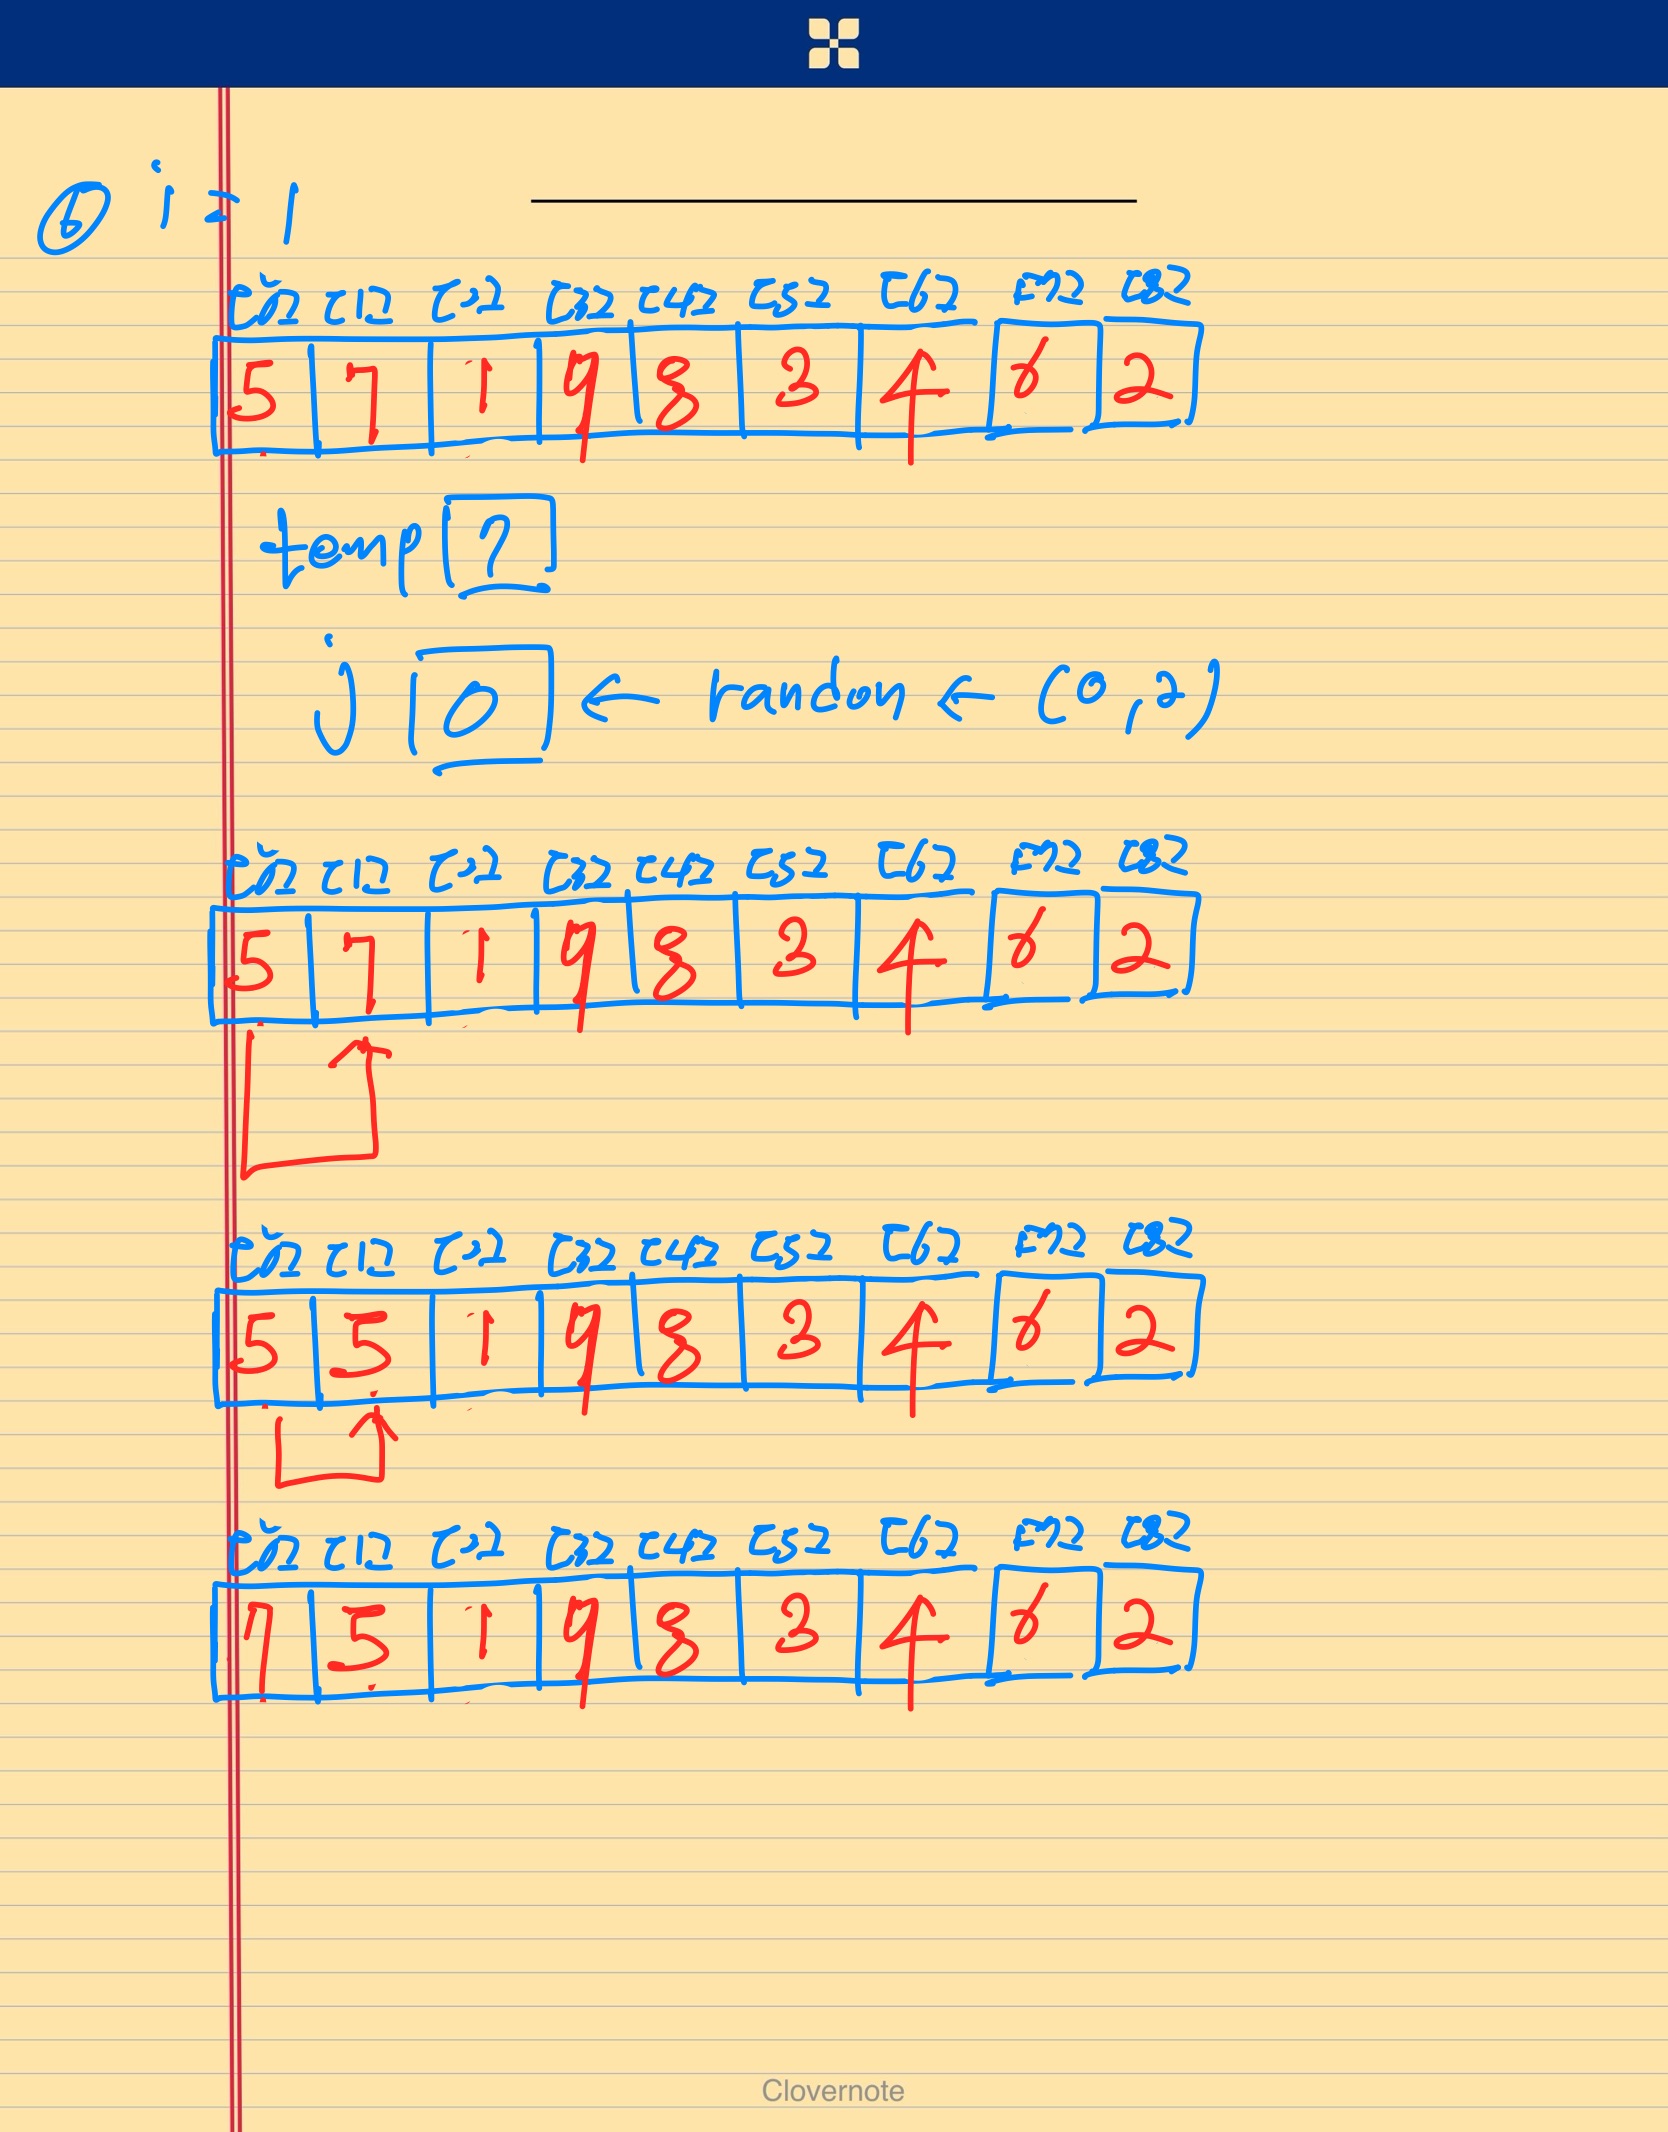 ⑥ i = 1
[0] [1] [2] [3] [4] [5] [6] [7] [8]
5 7 1 9 8 3 4 6 2
temp ?
j 0 ← randon ← (0,2)
[0] [1] [2] [3] [4] [5] [6] [7] [8]
5 7 1 9 8 3 4 6 2
[0] [1] [2] [3] [4] [5] [6] [7] [8]
5 5 1 9 8 3 4 6 2
[0] [1] [2] [3] [4] [5] [6] [7] [8]
7 5 1 9 8 3 4 6 2
Clovernote